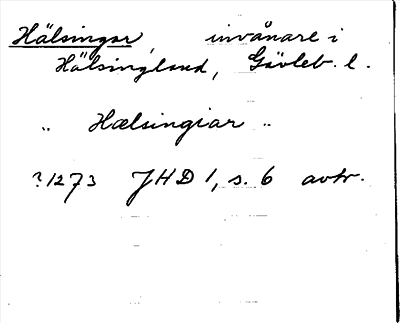 Hälsingar, invånare i
Hälsingland, Gävleb. l.
„ Hælsingiar „
? 1273 JHD 1, s. 6 avtr.